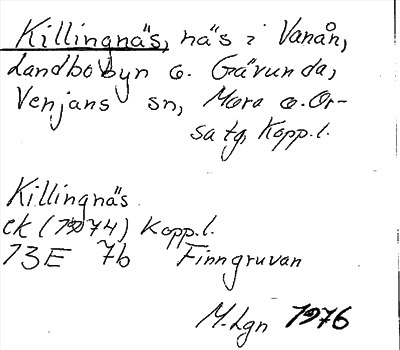 Killingnäs, näs i Vanån,
Landbobyn o. Gävunda,
Venjans sn, Mora o. Or-
sa tg, Kopp.l.
Killingnäs
ek (1974) Kopp.l.
13E 7b Finngruvan
M.Lgn 1976